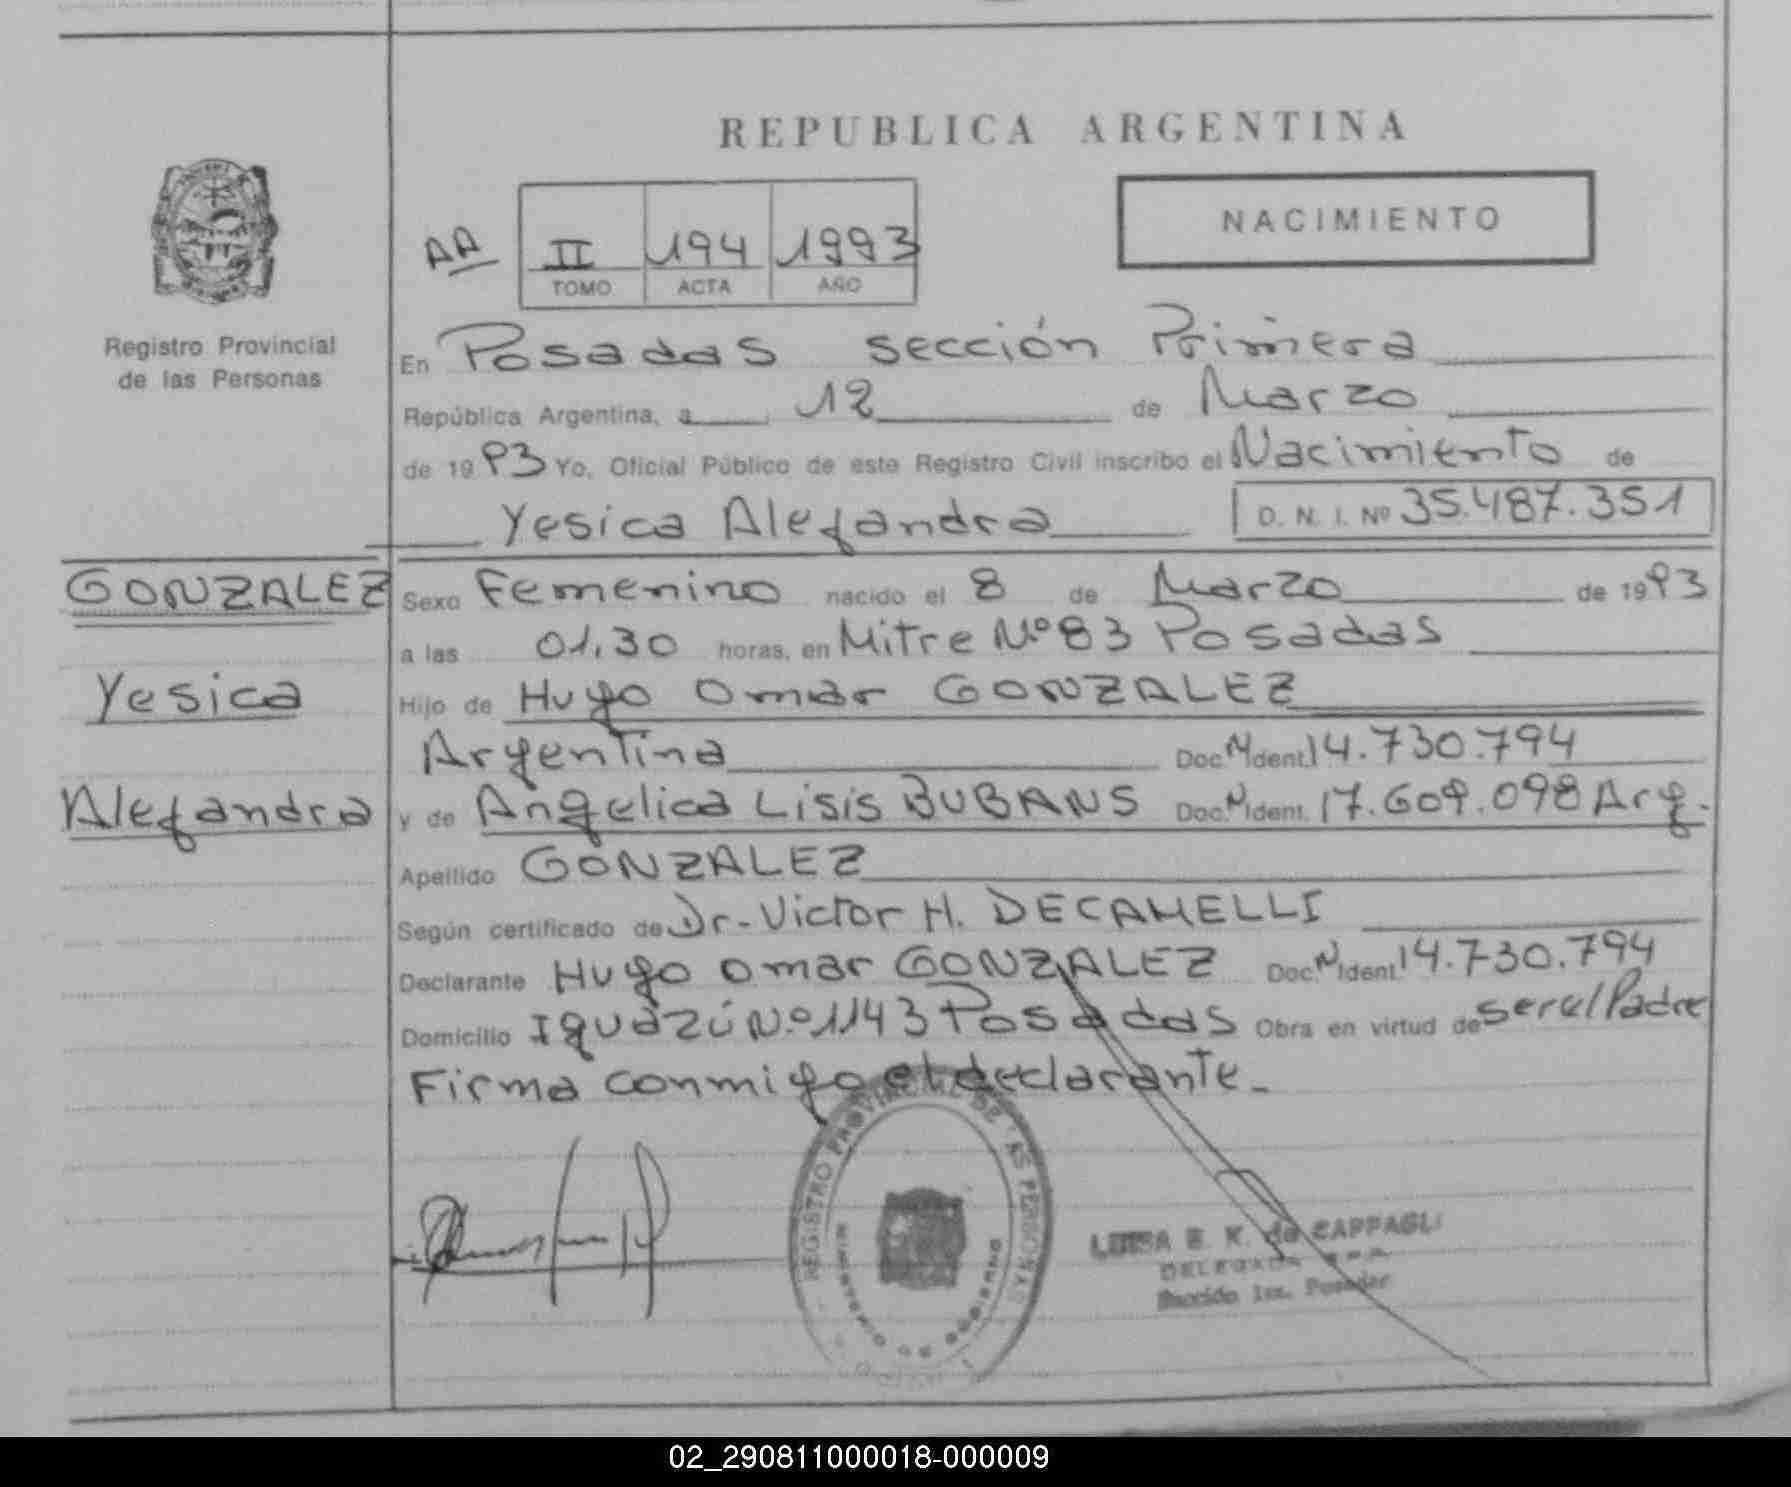 REPUBLICA ARGENTINA
NACIMIENTO
AA II 194 1993
TOMO ACTA AÑO
Registro Provincial
de las Personas
En Posadas sección Primera
República Argentina, a 12 de Marzo
de 1993 Yo, Oficial Público de este Registro Civil inscribo el Nacimiento de
Yesica Alejandra D. N. I. Nº 35.487.351
GONZALEZ
Yesica
Alejandra
Sexo Femenino nacido el 8 de Marzo de 1993
a las 01,30 horas, en Mitre Nº 83 Posadas
Hijo de Hugo Omar GONZALEZ
Argentina Doc. N Ident. 14.730.794
y de Angelica Lisis BUBANS Doc. N Ident. 17.609.098 Arg.
Apellido GONZALEZ
Según certificado de Dr. Victor H. DECAMELLI
Declarante Hugo Omar GONZALEZ Doc. N Ident. 14.730.794
Domicilio Iguazú Nº 1143 Posadas Obra en virtud de ser el Padre
Firma conmigo el declarante.
REGISTRO PROVINCIAL DE LAS PERSONAS
MINISTERIO DE GOBIERNO
LUISA E. K. de CAPPAGLI
DELEGADA
Sección 1ra. Posadas
02_290811000018-000009